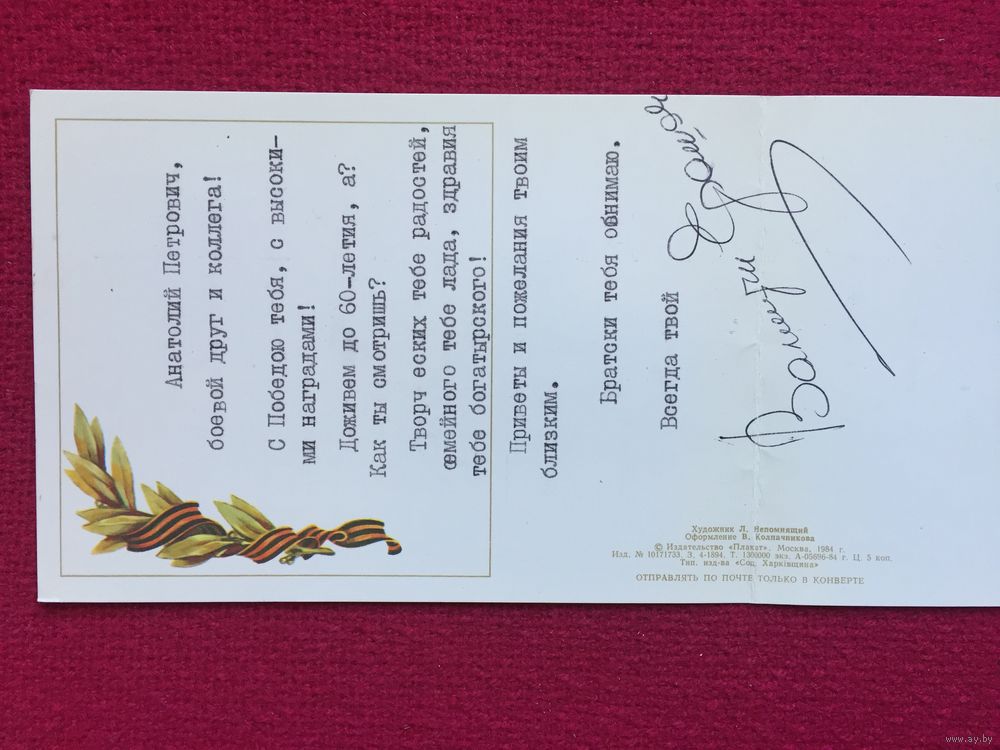 Анатолий Петрович,
боевой друг и коллега!
С Победою тебя, с высоки-
ми наградами!
Доживем до 60-летия, а?
Как ты смотришь?
Творч еских тебе радостей,
семейного тебе лада, здравия
тебе богатырского!
Приветы и пожелания твоим
близким.
Братски тебя обнимаю.
Всегда твой
Художник Л. Непомнящий
Оформление В. Колпачникова
© Издательство «Плакат», Москва, 1984 г.
Изд. № 10171733. З. 4-1894. Т. 1300000 экз. А-05696-84 г. Ц. 5 коп.
Тип. изд-ва «Соц. Харківщина»
ОТПРАВЛЯТЬ ПО ПОЧТЕ ТОЛЬКО В КОНВЕРТЕ
www.ay.by